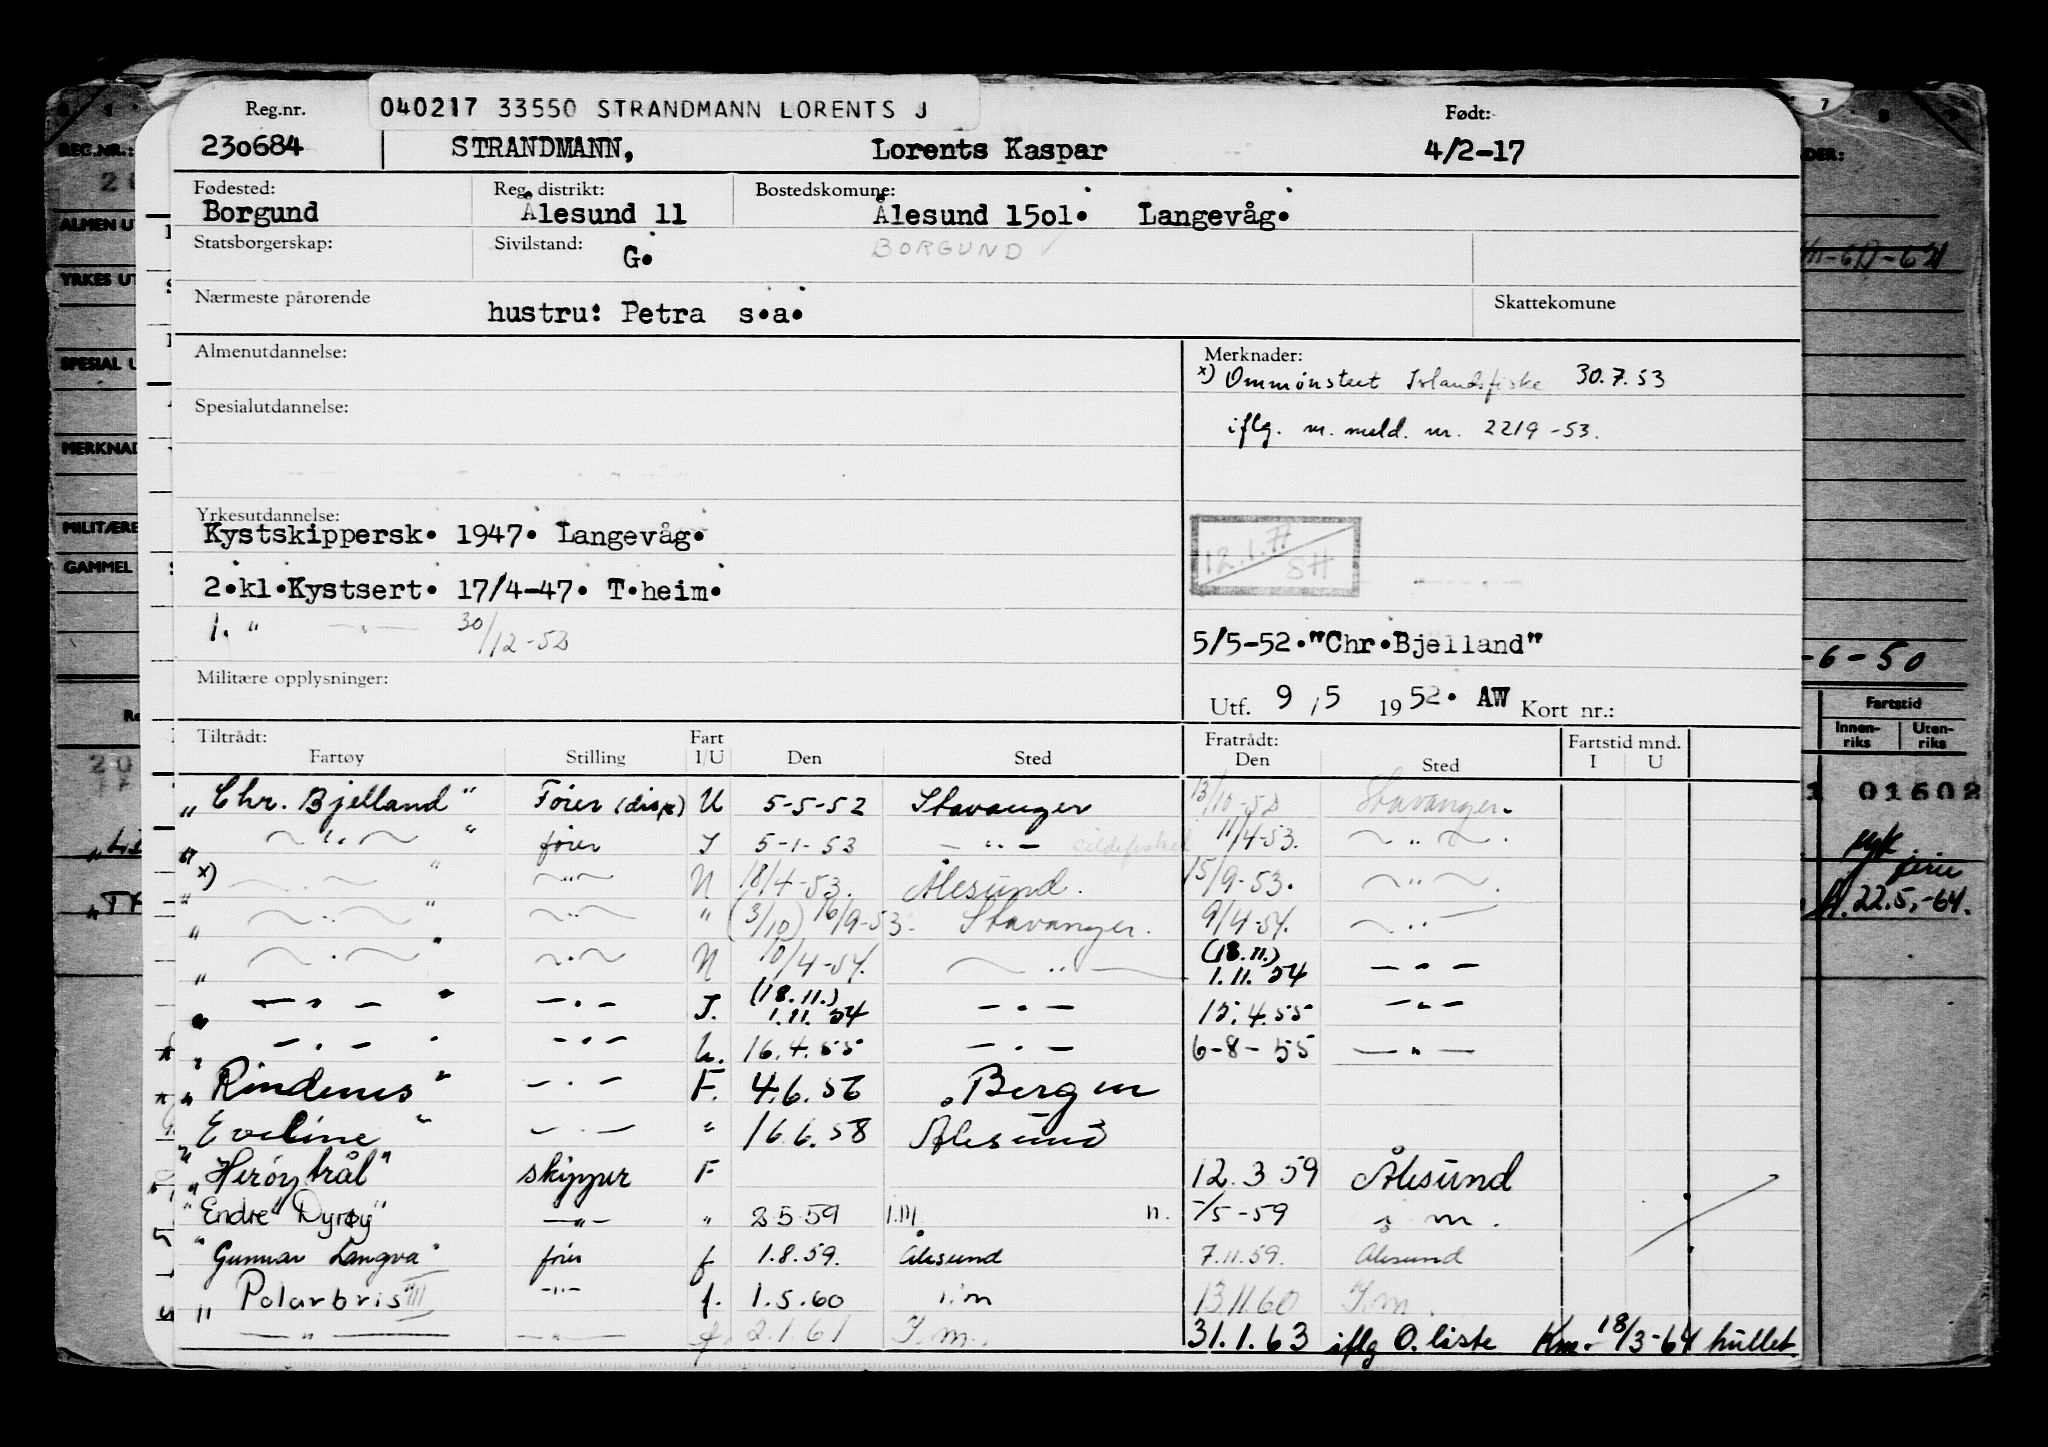 Reg.nr. 040217 33550 STRANDMANN LORENTS J Født:
230684 STRANDMANN, Lorents Kaspar 4/2-17
Fødested: Reg. distrikt: Bostedskomune:
Borgund Ålesund 11 Ålesund 1501. Langevåg.
Statsborgerskap: Sivilstand: G. BORGUND
Nærmeste pårørende hustru: Petra s.a. Skattekomune
Almenutdannelse: Merknader:
x) Ommønstret Islandsfiske 30.7.53
Spesialutdannelse: iflg. m. meld. nr. 2219-53.
Yrkesutdannelse:
Kystskippersk. 1947. Langevåg.
12.1.77 SH
2.kl.Kystsert. 17/4-47. T.heim.
1. " —"— 30/12-52
5/5-52."Chr.Bjelland"
Militære opplysninger:
Utf. 9/5 1952. AW Kort nr.:
Tiltrådt: Fart Fratrådt: Fartstid mnd.
Fartøy Stilling I/U Den Sted Den Sted I U
"Chr. Bjelland" Fører (disp) U 5-5-52 Stavanger 13/10-52 Stavanger.
" —"— " fører I 5-1-53 —"— sildefisket 11/4-53. —"—.
x) " —"— " —"— U 18/4-53. Ålesund. 15/9-53. —"—.
" —"— " —"— " (3/10) 16/9-53. Stavanger. 9/4-54. —"—
" —"— " —"— U 10/4-54. —"— (18.11.) 1.11.54 —"—
" —"— " —"— I. (18.11.) 1.11.54 —"— 15.4.55 —"—
" —"— " —"— U. 16.4.55 —"— 6-8-55 —"—
"Rindenes" —"— F. 4.6.56 Bergen
"Eveline" —"— " 16.6.58 Ålesund
"Herøytrål" skipper F 12.3.59 Ålesund
"Endre Dyrøy" —"— " 2.5.59 n. -/5-59 i m.
"Gunnar Langva" fører f 1.8.59. Ålesund 7.11.59. Ålesund
"Polarbris" III —"— f. 1.5.60 i.m 13.11.60 I.m.
—"— —"— f. 2.1.61 I.m. 31.1.63 iflg O.liste Km. 18/3-64 hullet
REG.NR.:
ALMEN UT
YRKES UT
SPESIAL U
MERKNAD
MILITÆRE
GAMMEL
-6-50
Fartstid
Innen-riks Uten-riks
01602
22.5.-64.